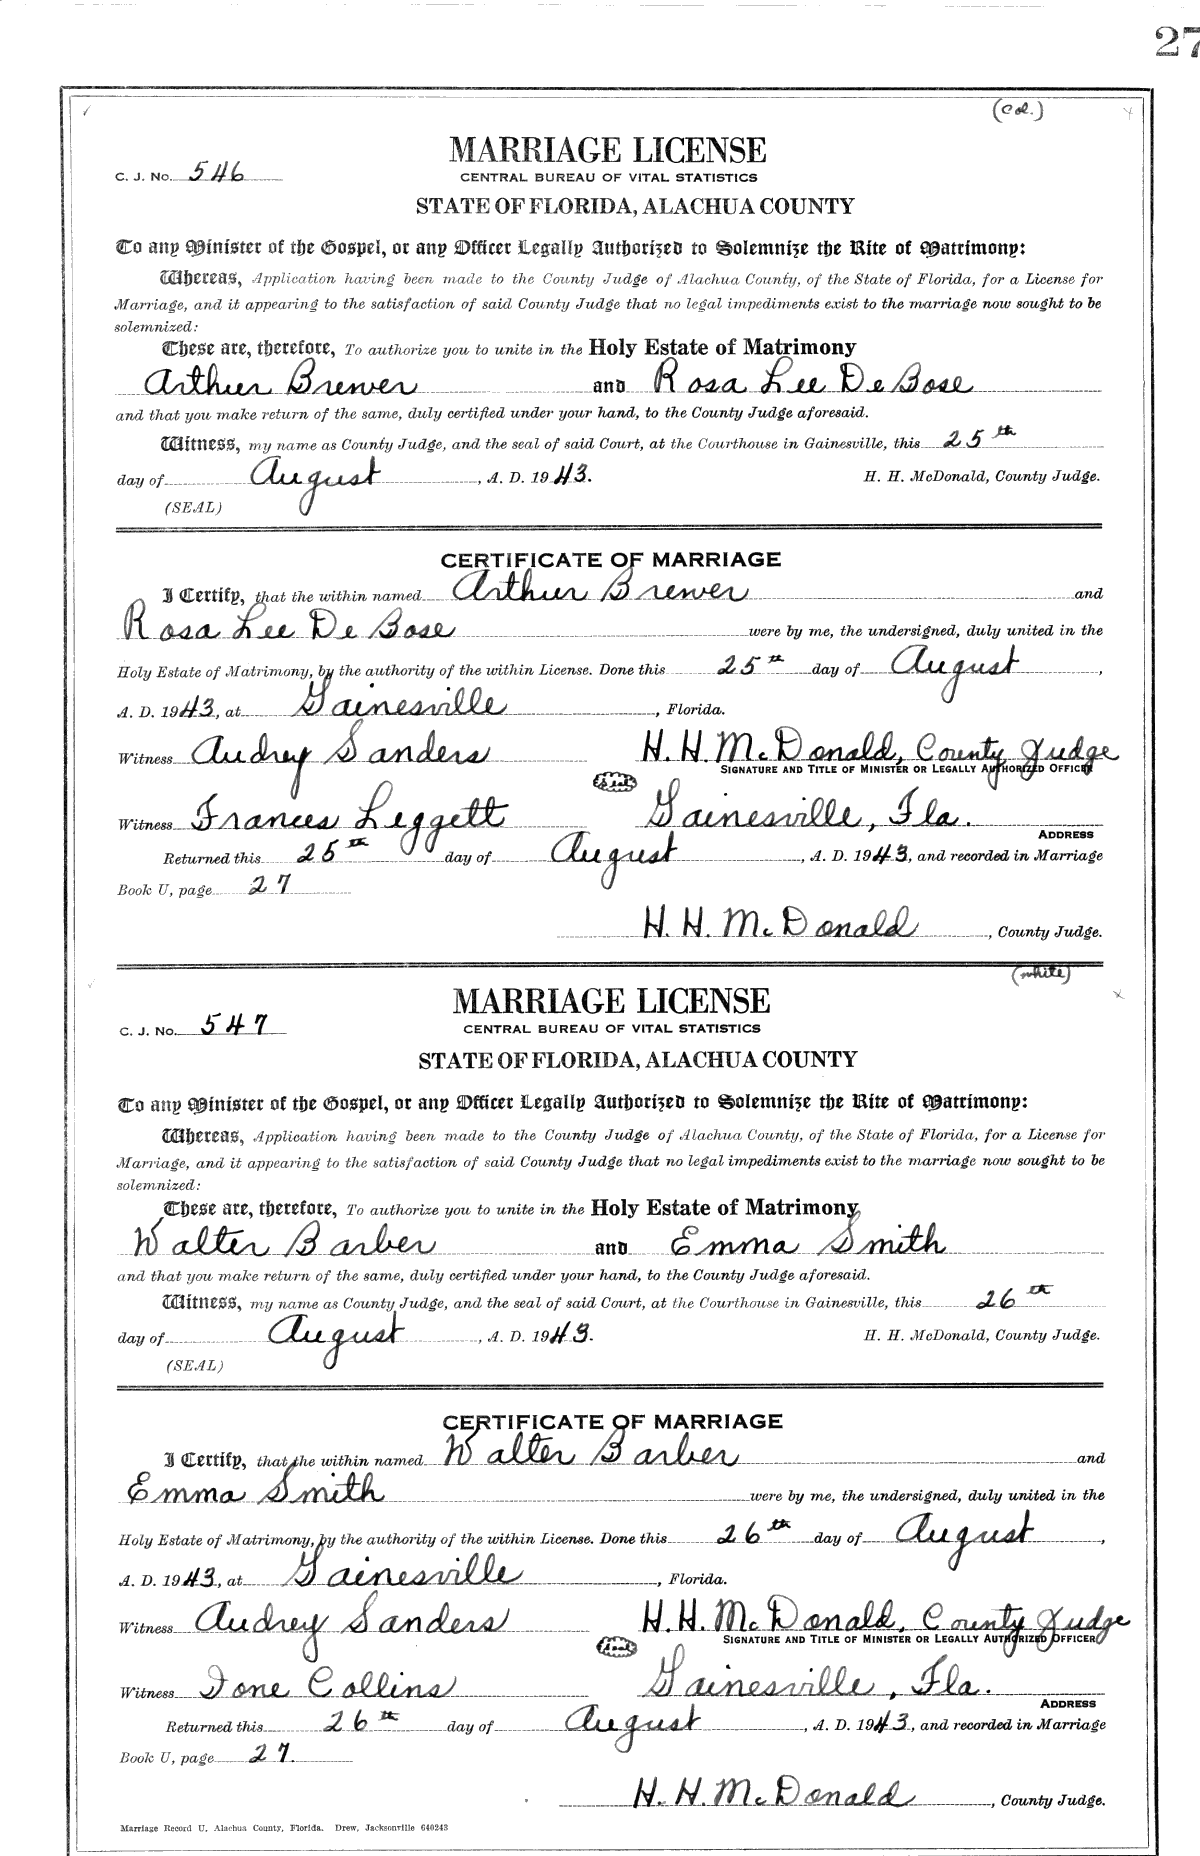 27
(Col.)
MARRIAGE LICENSE
C. J. No. 546
CENTRAL BUREAU OF VITAL STATISTICS
STATE OF FLORIDA, ALACHUA COUNTY
To any Minister of the Gospel, or any Officer Legally Authorized to Solemnize the Rite of Matrimony:
Whereas, Application having been made to the County Judge of Alachua County, of the State of Florida, for a License for
Marriage, and it appearing to the satisfaction of said County Judge that no legal impediments exist to the marriage now sought to be
solemnized:
These are, therefore, To authorize you to unite in the Holy Estate of Matrimony
Arthur Brewer and Rosa Lee DeBose
and that you make return of the same, duly certified under your hand, to the County Judge aforesaid.
Witness, my name as County Judge, and the seal of said Court, at the Courthouse in Gainesville, this 25th
day of August, A. D. 1943. H. H. McDonald, County Judge.
(SEAL)
CERTIFICATE OF MARRIAGE
I Certify, that the within named Arthur Brewer and
Rosa Lee DeBose were by me, the undersigned, duly united in the
Holy Estate of Matrimony, by the authority of the within License. Done this 25th day of August,
A. D. 1943, at Gainesville, Florida.
Witness Audrey Sanders H. H. McDonald, County Judge
SIGNATURE AND TITLE OF MINISTER OR LEGALLY AUTHORIZED OFFICER
(Seal)
Witness Frances Leggett Gainesville, Fla.
ADDRESS
Returned this 25th day of August, A. D. 1943, and recorded in Marriage
Book U, page 27
H. H. McDonald, County Judge.
(white)
MARRIAGE LICENSE
C. J. No. 547
CENTRAL BUREAU OF VITAL STATISTICS
STATE OF FLORIDA, ALACHUA COUNTY
To any Minister of the Gospel, or any Officer Legally Authorized to Solemnize the Rite of Matrimony:
Whereas, Application having been made to the County Judge of Alachua County, of the State of Florida, for a License for
Marriage, and it appearing to the satisfaction of said County Judge that no legal impediments exist to the marriage now sought to be
solemnized:
These are, therefore, To authorize you to unite in the Holy Estate of Matrimony
Walter Barber and Emma Smith
and that you make return of the same, duly certified under your hand, to the County Judge aforesaid.
Witness, my name as County Judge, and the seal of said Court, at the Courthouse in Gainesville, this 26th
day of August, A. D. 1943. H. H. McDonald, County Judge.
(SEAL)
CERTIFICATE OF MARRIAGE
I Certify, that the within named Walter Barber and
Emma Smith were by me, the undersigned, duly united in the
Holy Estate of Matrimony, by the authority of the within License. Done this 26th day of August,
A. D. 1943, at Gainesville, Florida.
Witness Audrey Sanders H. H. McDonald, County Judge
SIGNATURE AND TITLE OF MINISTER OR LEGALLY AUTHORIZED OFFICER
(Seal)
Witness Ione Collins Gainesville, Fla.
ADDRESS
Returned this 26th day of August, A. D. 1943, and recorded in Marriage
Book U, page 27.
H. H. McDonald, County Judge.
Marriage Record U, Alachua County, Florida. Drew, Jacksonville 640243